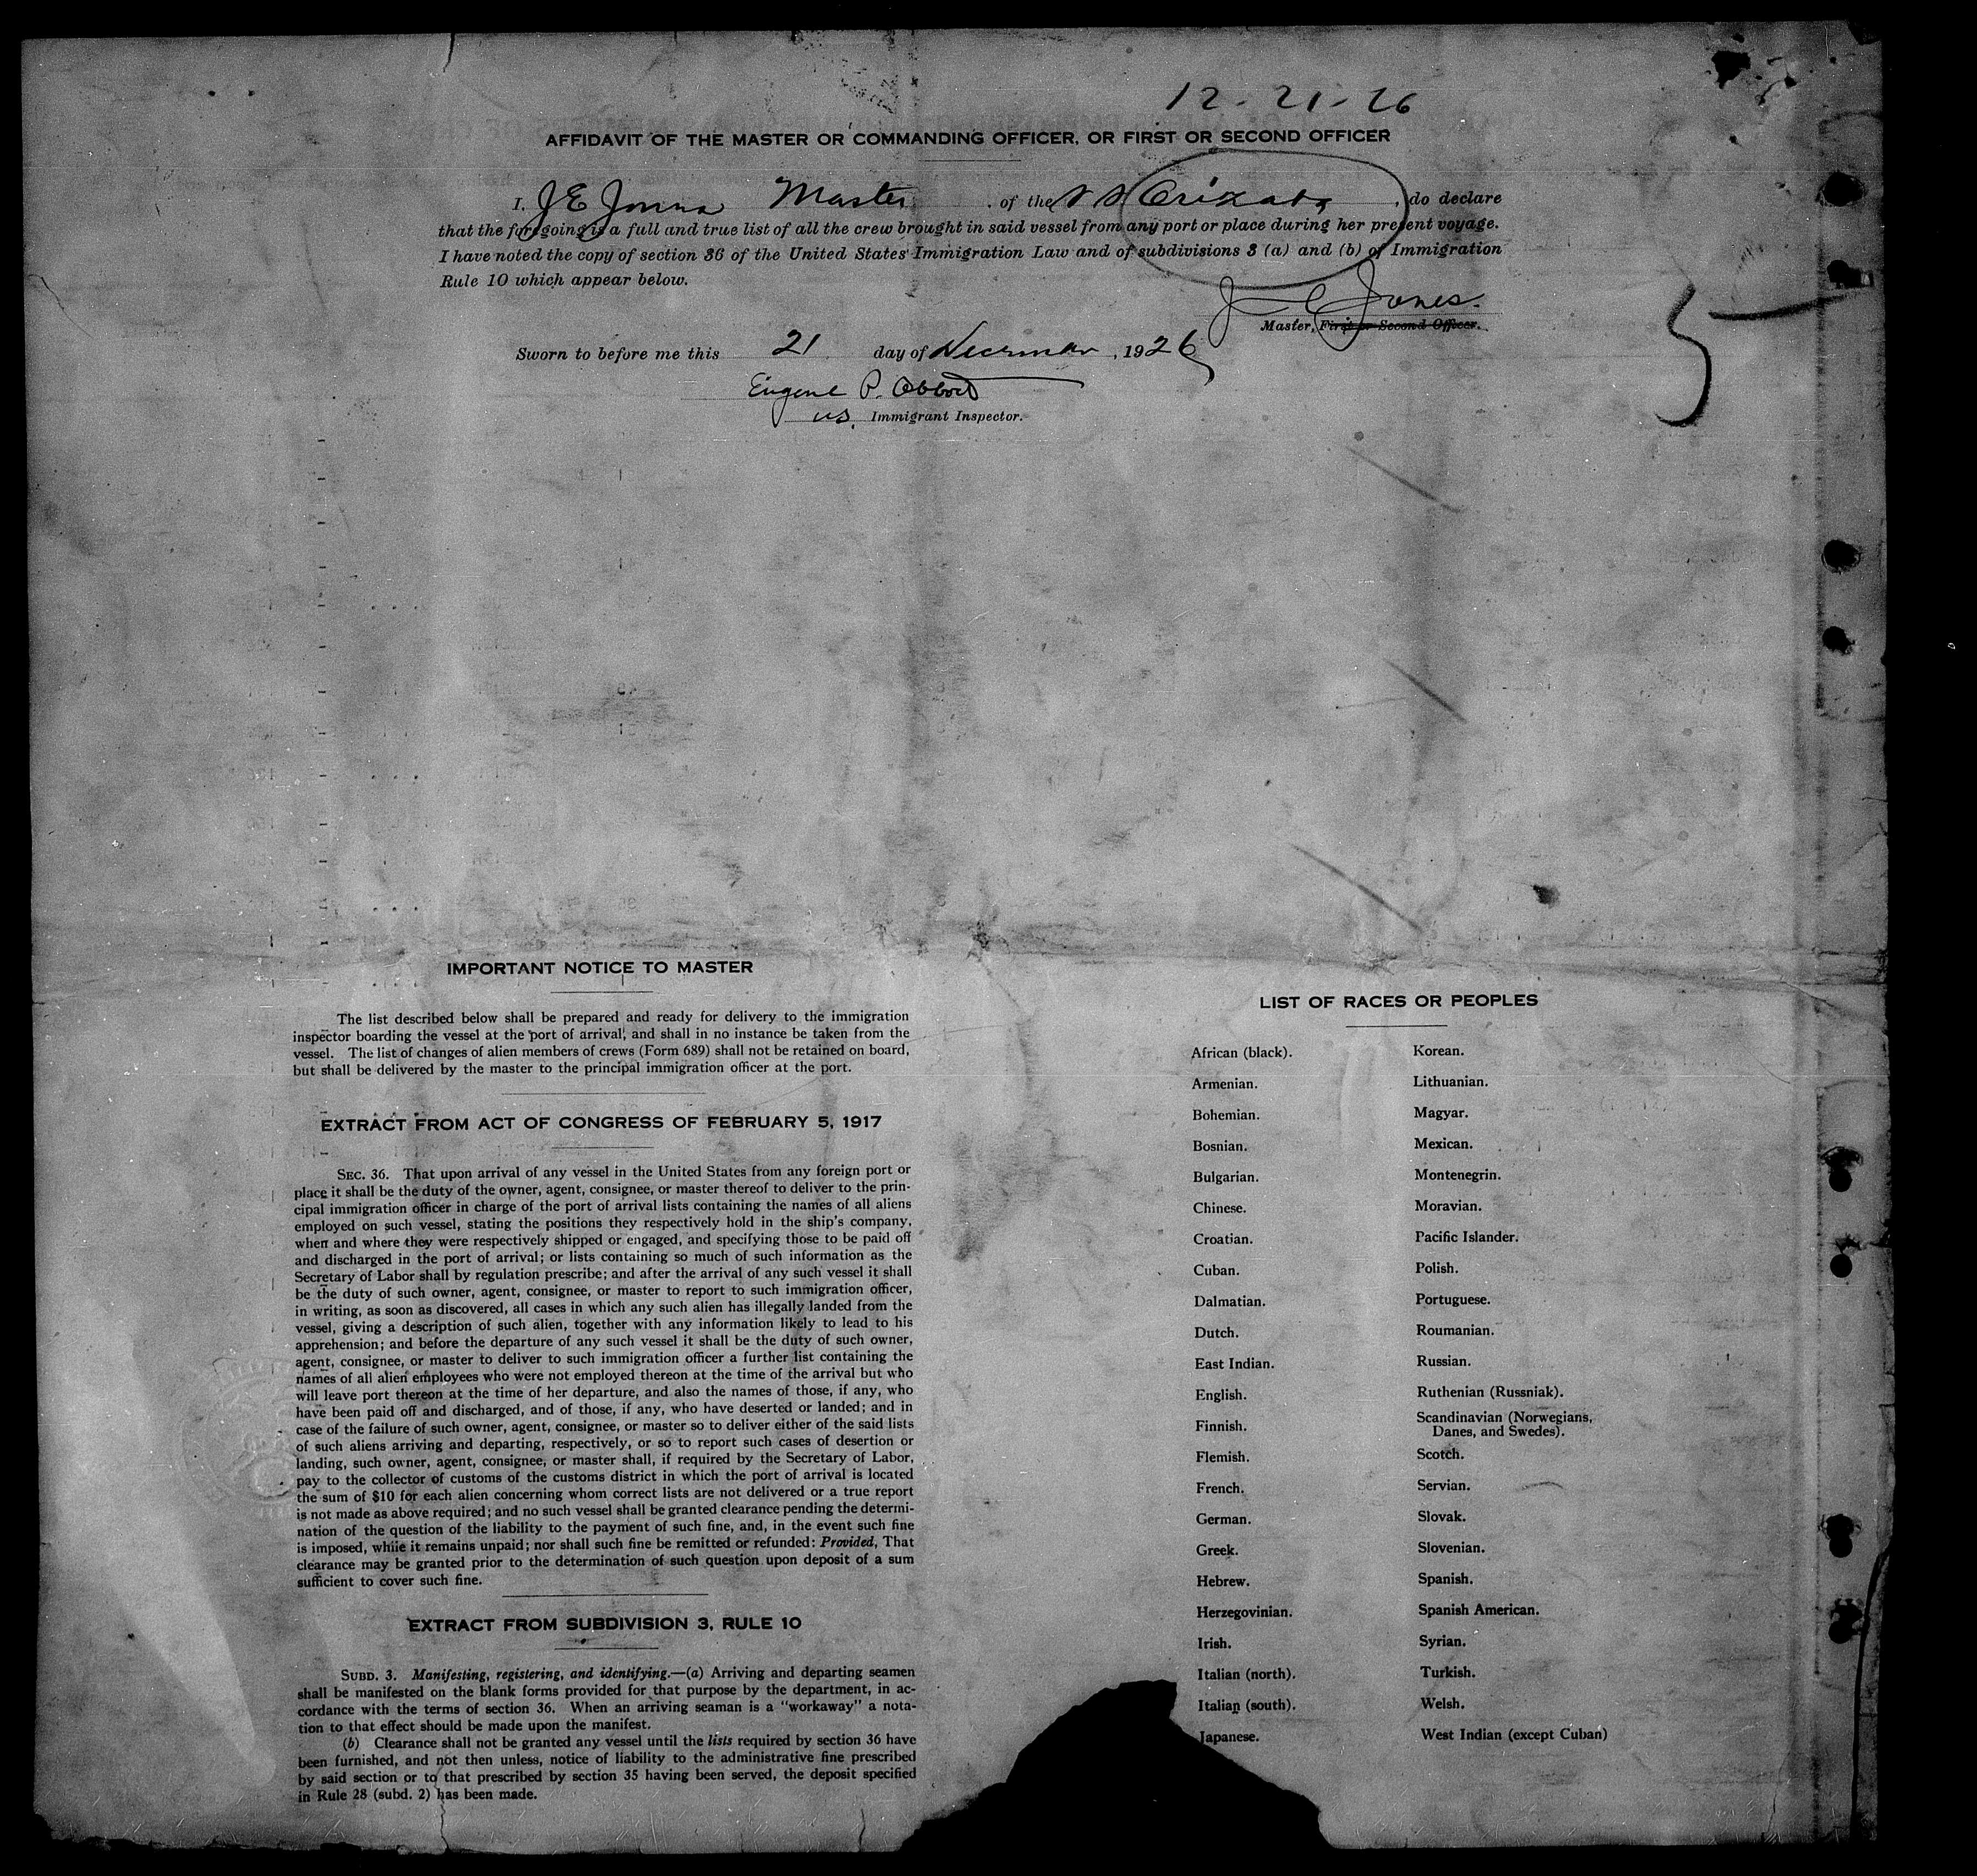 12-21-26
AFFIDAVIT OF THE MASTER OR COMMANDING OFFICER, OR FIRST OR SECOND OFFICER
I, J E Jones Master, of the S S Orizaba, do declare
that the foregoing is a full and true list of all the crew brought in said vessel from any port or place during her present voyage.
I have noted the copy of section 36 of the United States Immigration Law and of subdivisions 3 (a) and (b) of Immigration
Rule 10 which appear below.
J E Jones.
Master, First or Second Officer.
5
Sworn to before me this 21 day of December, 1926
Eugene P. Abbott
US. Immigrant Inspector.
IMPORTANT NOTICE TO MASTER
The list described below shall be prepared and ready for delivery to the immigration
inspector boarding the vessel at the port of arrival, and shall in no instance be taken from the
vessel. The list of changes of alien members of crews (Form 689) shall not be retained on board,
but shall be delivered by the master to the principal immigration officer at the port.
EXTRACT FROM ACT OF CONGRESS OF FEBRUARY 5, 1917
SEC. 36. That upon arrival of any vessel in the United States from any foreign port or
place it shall be the duty of the owner, agent, consignee, or master thereof to deliver to the prin-
cipal immigration officer in charge of the port of arrival lists containing the names of all aliens
employed on such vessel, stating the positions they respectively hold in the ship's company,
when and where they were respectively shipped or engaged, and specifying those to be paid off
and discharged in the port of arrival; or lists containing so much of such information as the
Secretary of Labor shall by regulation prescribe; and after the arrival of any such vessel it shall
be the duty of such owner, agent, consignee, or master to report to such immigration officer,
in writing, as soon as discovered, all cases in which any such alien has illegally landed from the
vessel, giving a description of such alien, together with any information likely to lead to his
apprehension; and before the departure of any such vessel it shall be the duty of such owner,
agent, consignee, or master to deliver to such immigration officer a further list containing the
names of all alien employees who were not employed thereon at the time of the arrival but who
will leave port thereon at the time of her departure, and also the names of those, if any, who
have been paid off and discharged, and of those, if any, who have deserted or landed; and in
case of the failure of such owner, agent, consignee, or master so to deliver either of the said lists
of such aliens arriving and departing, respectively, or so to report such cases of desertion or
landing, such owner, agent, consignee, or master shall, if required by the Secretary of Labor,
pay to the collector of customs of the customs district in which the port of arrival is located
the sum of $10 for each alien concerning whom correct lists are not delivered or a true report
is not made as above required; and no such vessel shall be granted clearance pending the determi-
nation of the question of the liability to the payment of such fine, and, in the event such fine
is imposed, while it remains unpaid; nor shall such fine be remitted or refunded: Provided, That
clearance may be granted prior to the determination of such question upon deposit of a sum
sufficient to cover such fine.
EXTRACT FROM SUBDIVISION 3, RULE 10
SUBD. 3. Manifesting, registering, and identifying.—(a) Arriving and departing seamen
shall be manifested on the blank forms provided for that purpose by the department, in ac-
cordance with the terms of section 36. When an arriving seaman is a "workaway" a nota-
tion to that effect should be made upon the manifest.
(b) Clearance shall not be granted any vessel until the lists required by section 36 have
been furnished, and not then unless, notice of liability to the administrative fine prescribed
by said section or to that prescribed by section 35 having been served, the deposit specified
in Rule 28 (subd. 2) has been made.
LIST OF RACES OR PEOPLES
African (black).
Armenian.
Bohemian.
Bosnian.
Bulgarian.
Chinese.
Croatian.
Cuban.
Dalmatian.
Dutch.
East Indian.
English.
Finnish.
Flemish.
French.
German.
Greek.
Hebrew.
Herzegovinian.
Irish.
Italian (north).
Italian (south).
Japanese.
Korean.
Lithuanian.
Magyar.
Mexican.
Montenegrin.
Moravian.
Pacific Islander.
Polish.
Portuguese.
Roumanian.
Russian.
Ruthenian (Russniak).
Scandinavian (Norwegians,
Danes, and Swedes).
Scotch.
Servian.
Slovak.
Slovenian.
Spanish.
Spanish American.
Syrian.
Turkish.
Welsh.
West Indian (except Cuban)